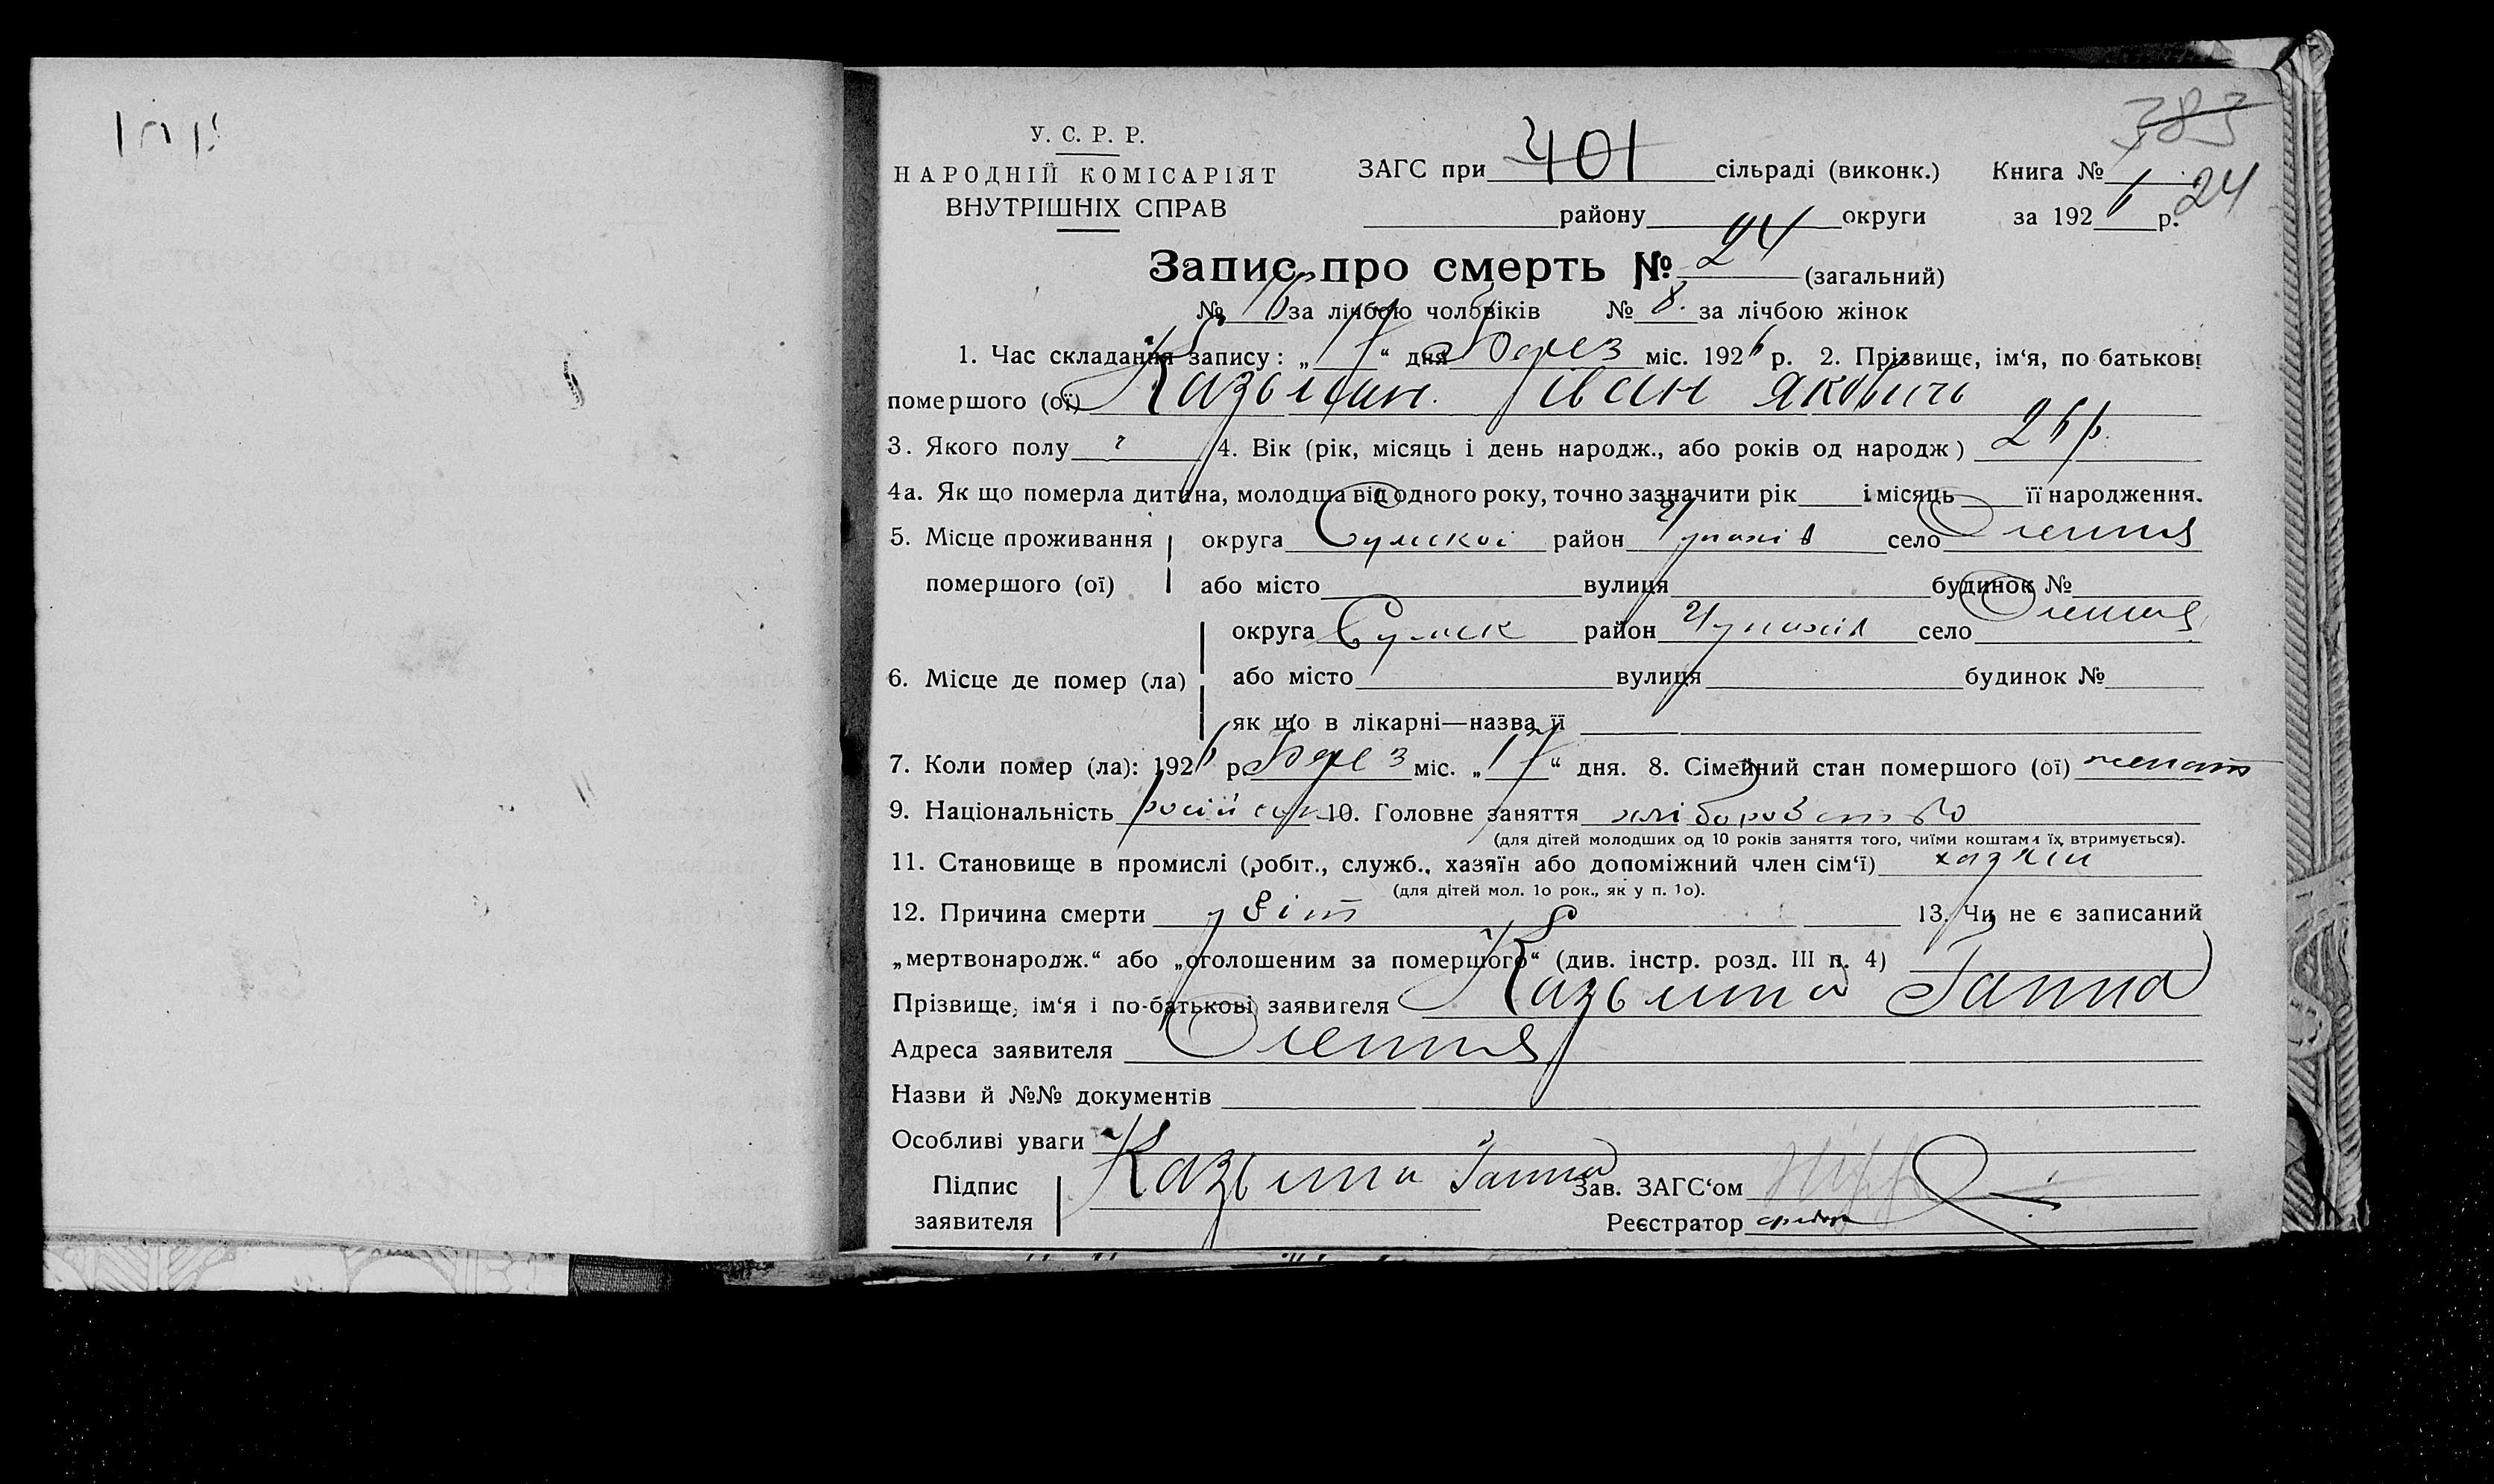 383
У. С. Р. Р.
НАРОДНІЙ КОМІСАРІЯТ
ВНУТРІШНІХ СПРАВ
ЗАГС при 401 сільраді (виконк.) Книга №
району округи за 1926 р. 24
Запис про смерть № 24 (загальний)
№ 16 за лічбою чоловіків № 8. за лічбою жінок
1. Час складання запису: „17“ дня Берез міс. 1926 р. 2. Прізвище, ім‘я, по батькові
помершого (ої) Казьмин Іван Якович
3. Якого полу ч 4. Вік (рік, місяць і день народж., або років од народж) 26 р.
4а. Як що померла дитина, молодша від одного року, точно зазначити рік і місяць її народження.
5. Місце проживання округа Сумской район село
помершого (ої) або місто вулиця будинок №
округа Сумск район село
6. Місце де помер (ла) або місто вулиця будинок №
як що в лікарні—назва її
7. Коли помер (ла): 1926 р. Берез міс. „17“ дня. 8. Сімейний стан помершого (ої) женат
9. Національність 10. Головне заняття хліборобство
(для дітей молодших од 10 років заняття того, чиїми коштами їх втримується).
11. Становище в промислі (робіт., служб., хазяїн або допоміжний член сім‘ї) хазяїн
(для дітей мол. 10 рок., як у п. 10).
12. Причина смерти 13. Чи не є записаний
„мертвонародж.“ або „оголошеним за помершого“ (див. інстр. розд. III п. 4)
Прізвище, ім‘я і по-батькові заявителя Казьмина Ганна
Адреса заявителя
Назви й №№ документів
Особливі уваги
Підпис
заявителя Казьмина Ганна Зав. ЗАГС‘ом
Реєстратор